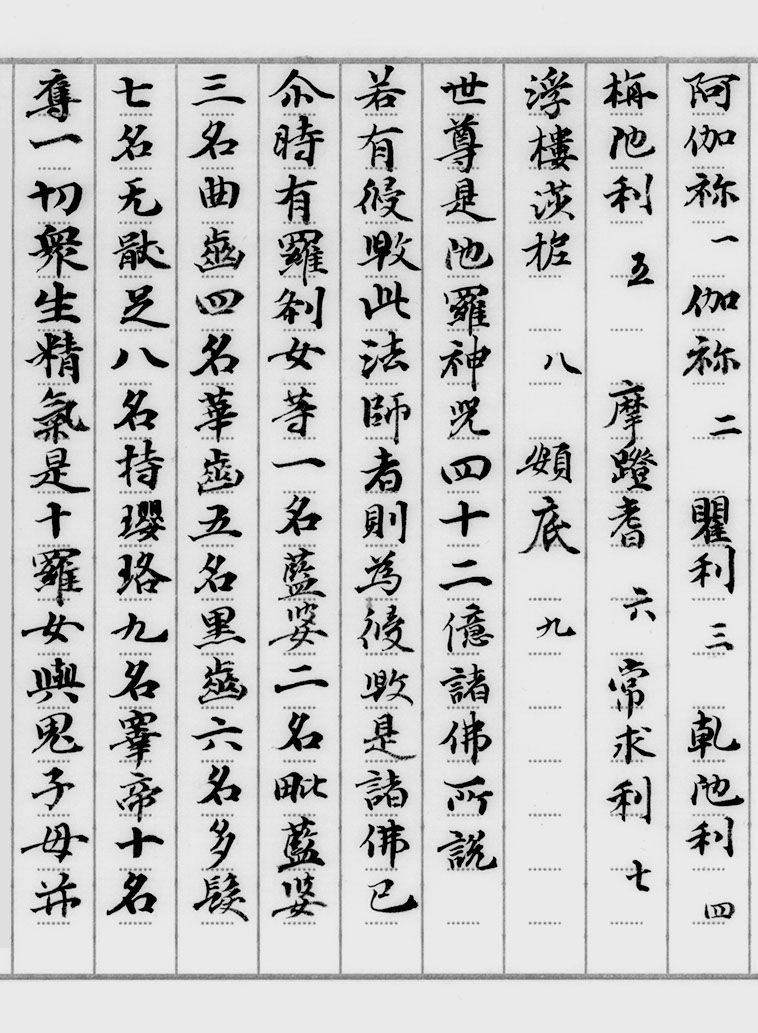 阿伽祢一伽祢二瞿利三乹陁利四
栴陁利五摩蹬耆六常求利七
浮樓莎柅八頞底九
世尊是陁羅神呪四十二億諸佛所說
若有侵毀此法師者則為侵毀是諸佛已
尒時有羅剎女等一名藍婆二名毗藍婆
三名曲齒四名華齒五名黑齒六名多髮
七名无猒足八名持瓔珞九名睾帝十名
奪一切衆生精氣是十羅女與鬼子母并